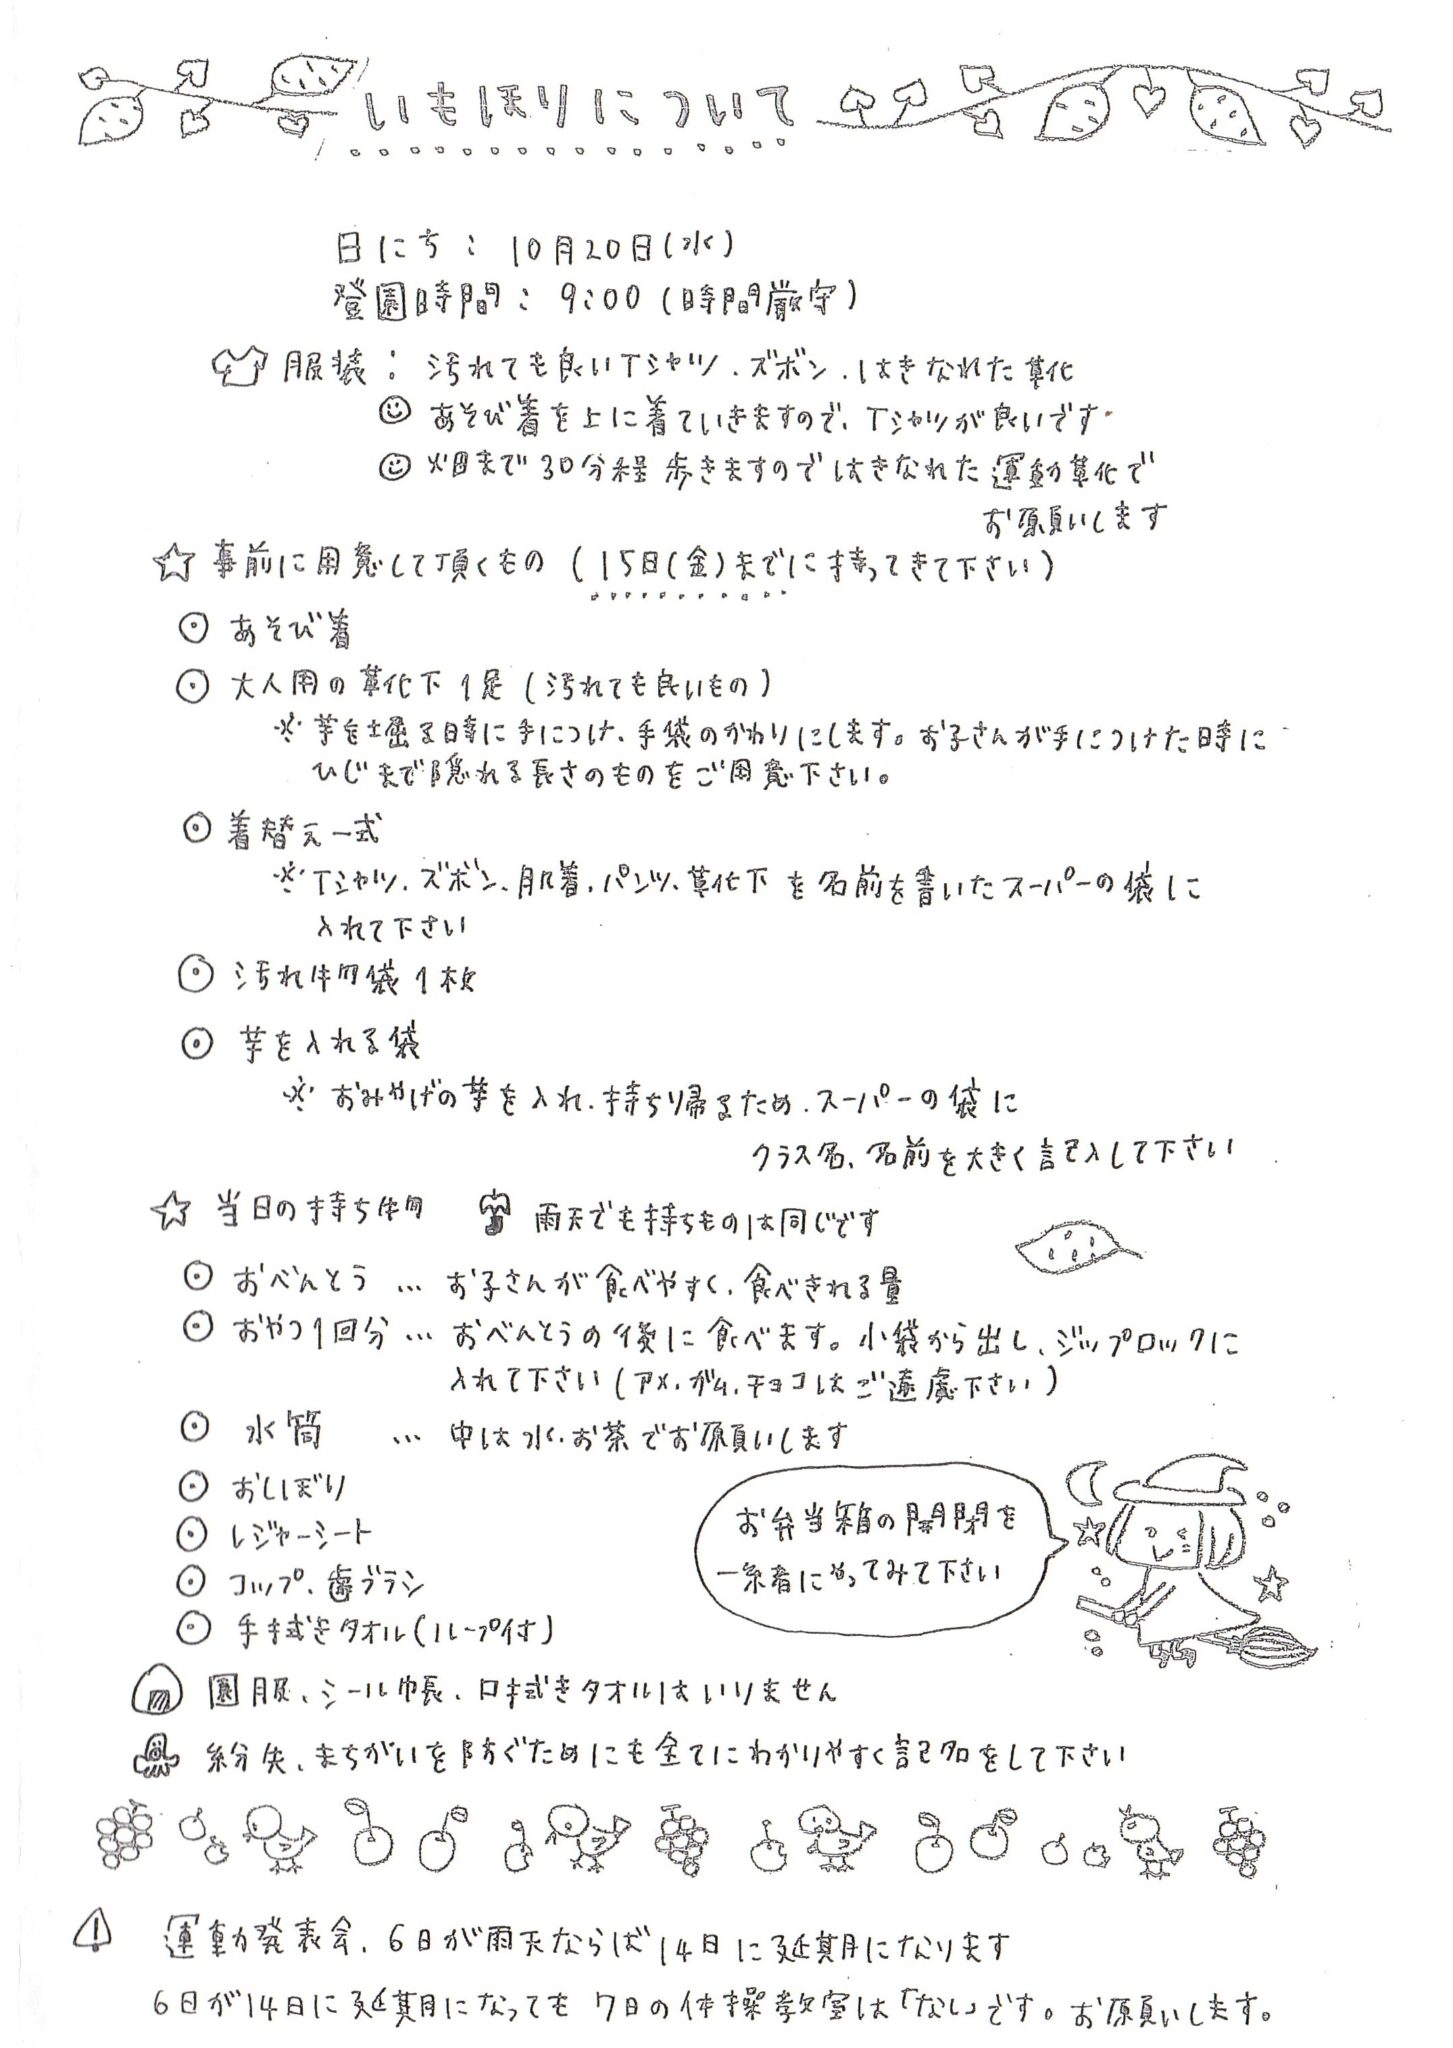 いもほりについて
日にち：10月20日(水)
登園時間：9:00(時間厳守)
服装：汚れても良いTシャツ、ズボン、はきなれた草化
あそび着を上に着ていきますので、Tシャツが良いです
畑まで30分程歩きますのではきなれた運動草化で
お願いします
☆ 事前に用意して頂くもの (15日(金)までに持ってきて下さい)
⊙ あそび着
⊙ 大人用の草化下 1足 (汚れても良いもの)
※ 芋を堀る時に手につけ、手袋のかわりにします。お子さんが手につけた時に
ひじまで隠れる長さのものをご用意下さい。
⊙ 着替え一式
※ Tシャツ、ズボン、肌着、パンツ、草化下を名前を書いたスーパーの袋に
入れて下さい
⊙ 汚れ物袋1枚
⊙ 芋を入れる袋
※ おみやげの芋を入れ、持ち帰るため、スーパーの袋に
クラス名、名前を大きく記入して下さい
☆ 当日の持ち物 雨天でも持ちものは同じです
⊙ おべんとう … お子さんが食べやすく、食べきれる量
⊙ おやつ1回分 … おべんとうの後に食べます。小袋から出し、ジップロックに
入れて下さい(アメ、ガム、チョコはご遠慮下さい)
⊙ 水筒 … 中は水、お茶でお願いします
⊙ おしぼり
⊙ レジャーシート
⊙ コップ、歯ブラシ
⊙ 手拭きタオル(ループ付)
お弁当箱の開閉を
一緒にやってみて下さい
園服、シール帳、口拭きタオルはいりません
紛失、まちがいを防ぐためにも全てにわかりやすく記名をして下さい
運動発表会、6日が雨天ならば14日に延期になります
6日が14日に延期になっても7日の体操教室は「ない」です。お願いします。